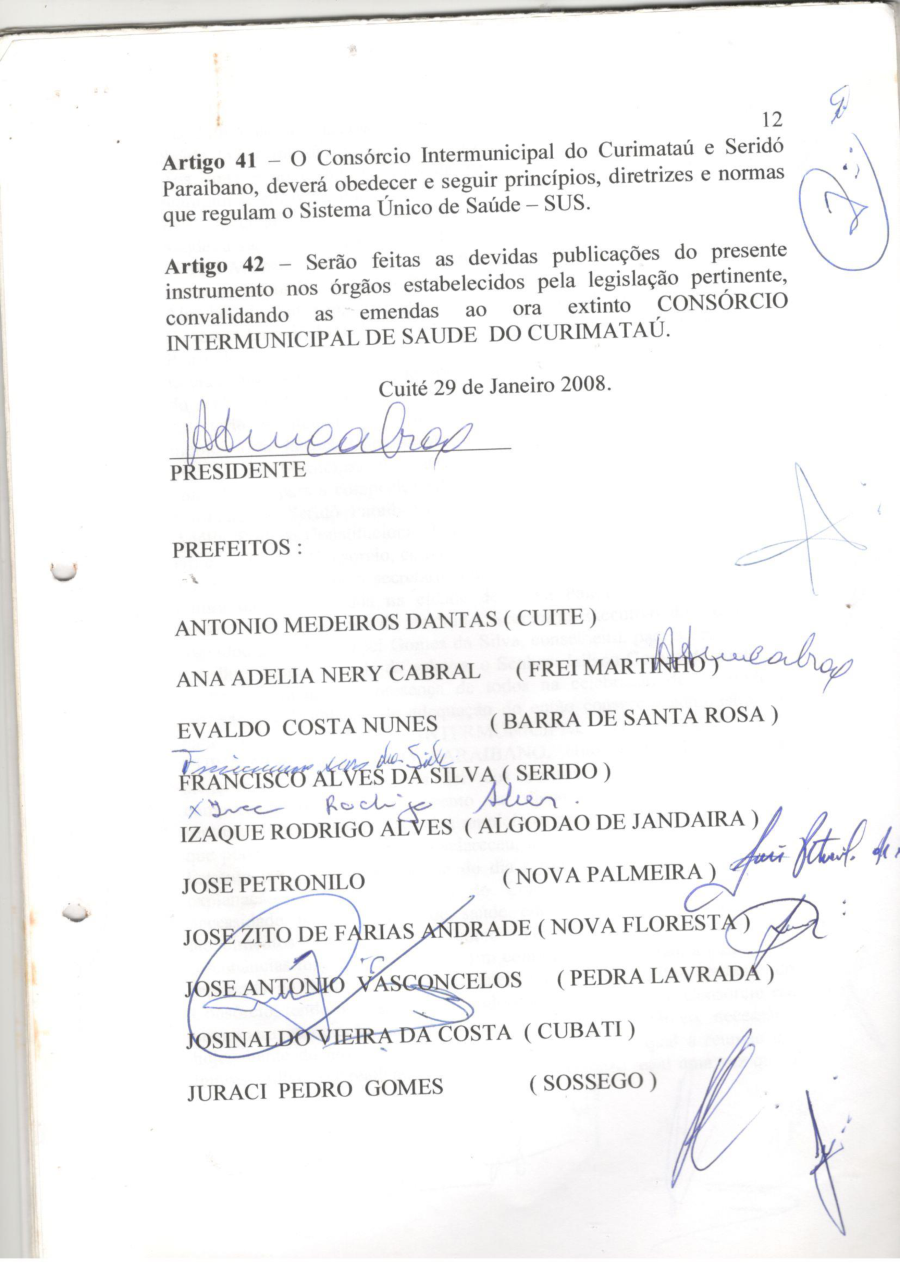 12
Artigo 41 – O Consórcio Intermunicipal do Curimataú e Seridó
Paraibano, deverá obedecer e seguir princípios, diretrizes e normas
que regulam o Sistema Único de Saúde – SUS.
Artigo 42 – Serão feitas as devidas publicações do presente
instrumento nos órgãos estabelecidos pela legislação pertinente,
convalidando as emendas ao ora extinto CONSÓRCIO
INTERMUNICIPAL DE SAUDE DO CURIMATAÚ.
Cuité 29 de Janeiro 2008.
PRESIDENTE
PREFEITOS :
ANTONIO MEDEIROS DANTAS ( CUITE )
ANA ADELIA NERY CABRAL ( FREI MARTINHO )
EVALDO COSTA NUNES ( BARRA DE SANTA ROSA )
FRANCISCO ALVES DA SILVA ( SERIDO )
Rodrigo
IZAQUE RODRIGO ALVES ( ALGODAO DE JANDAIRA )
JOSE PETRONILO ( NOVA PALMEIRA )
JOSE ZITO DE FARIAS ANDRADE ( NOVA FLORESTA )
JOSE ANTONIO VASCONCELOS ( PEDRA LAVRADA )
JOSINALDO VIEIRA DA COSTA ( CUBATI )
JURACI PEDRO GOMES ( SOSSEGO )